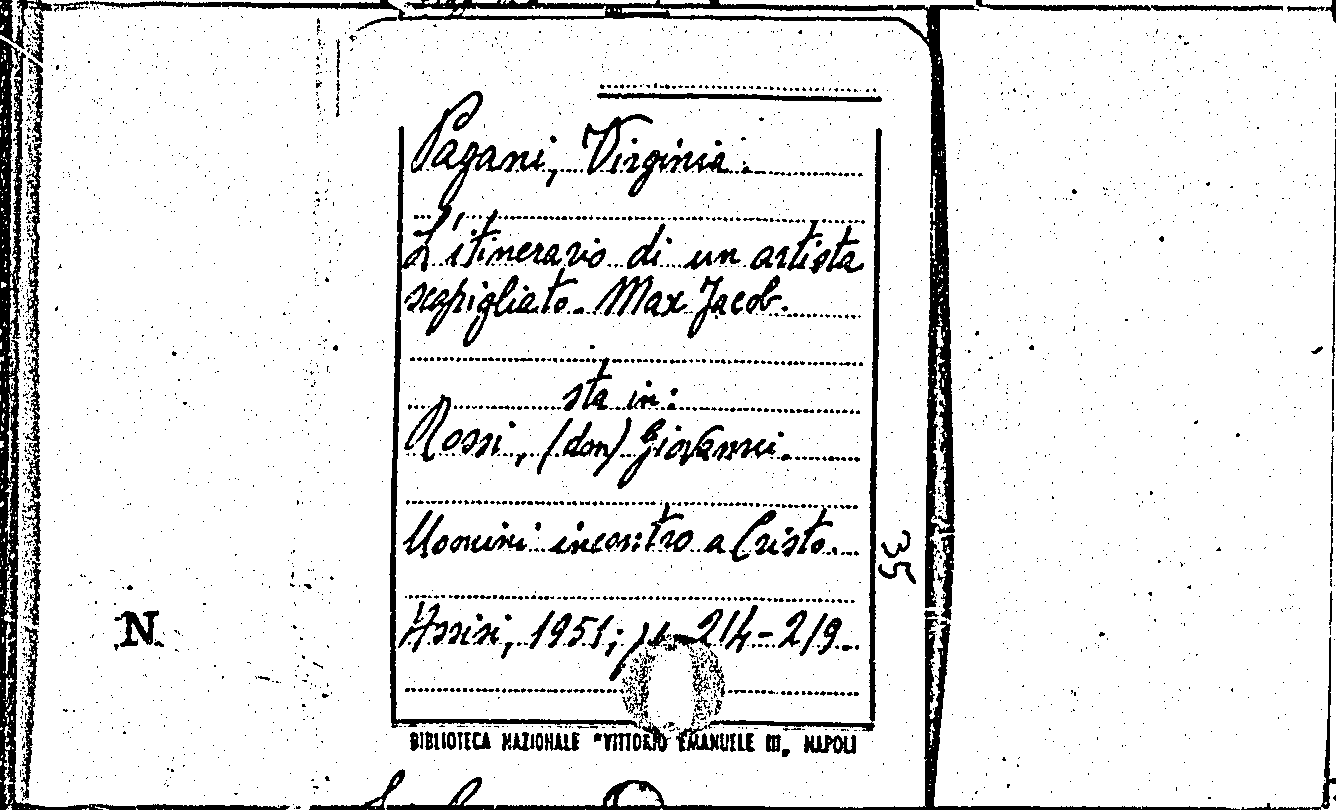 Pagani, Virginia.
L'itinerario di un artista
scapigliato. Max Jacob.
sta in:
Rossi, (don) Giovanni.
Uomini incontro a Cristo.
Assisi, 1951; p. 214-219.
35
N.
BIBLIOTECA NAZIONALE "VITTORIO EMANUELE III„ NAPOLI